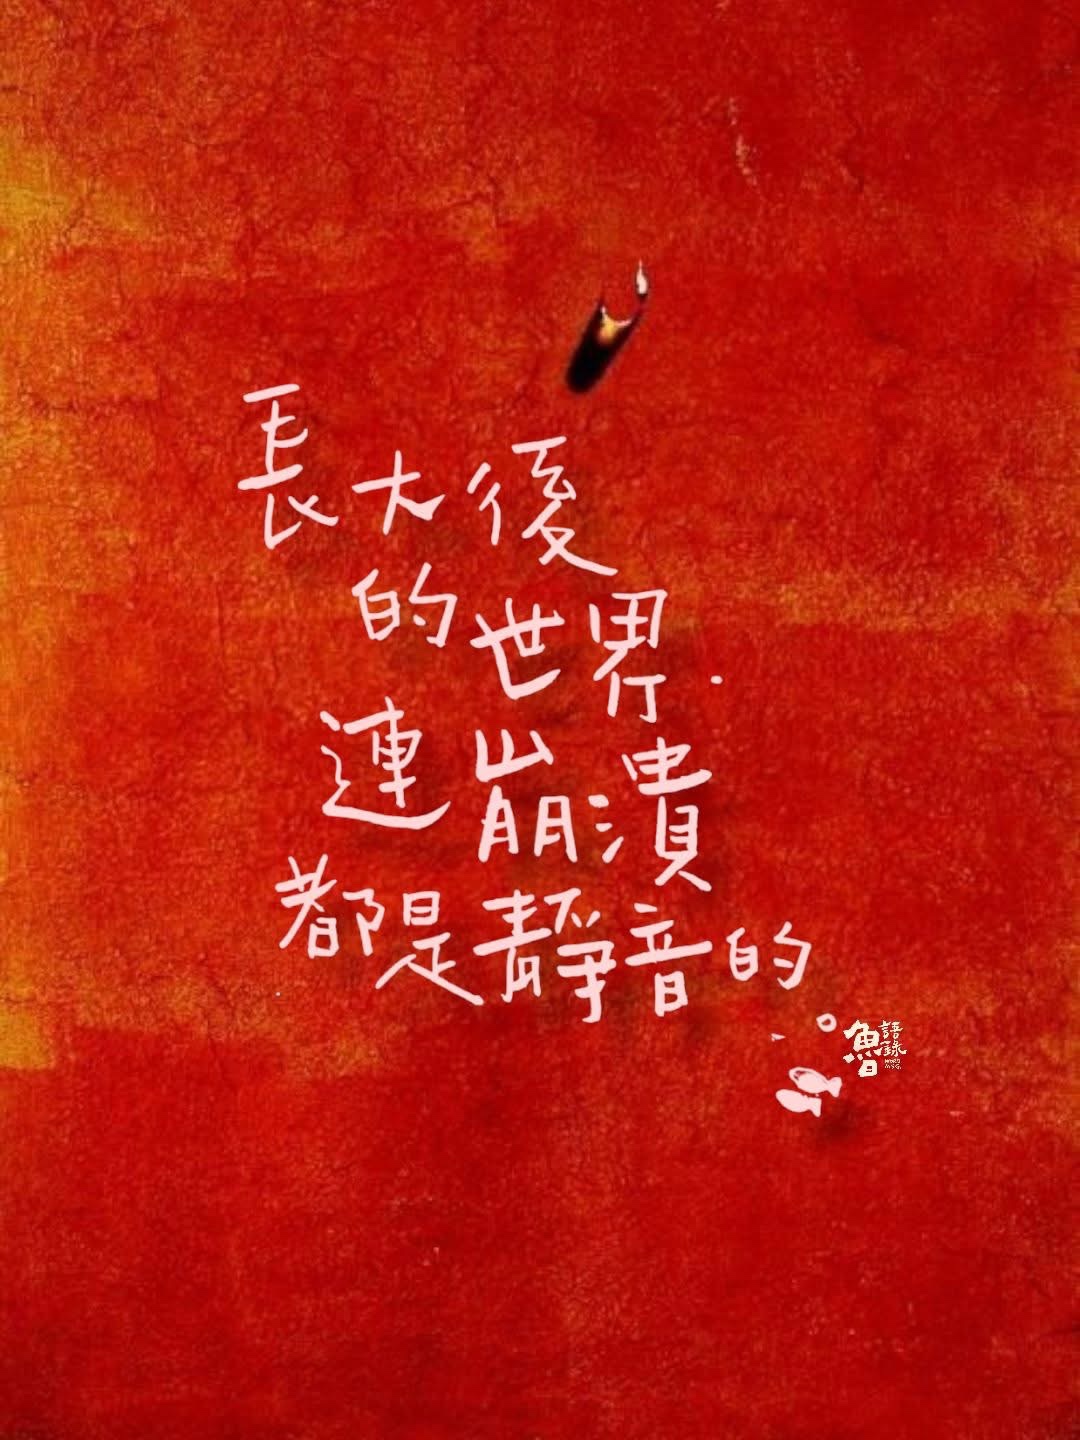 長大後
的世界
連崩潰
都是靜音的
魯語錄